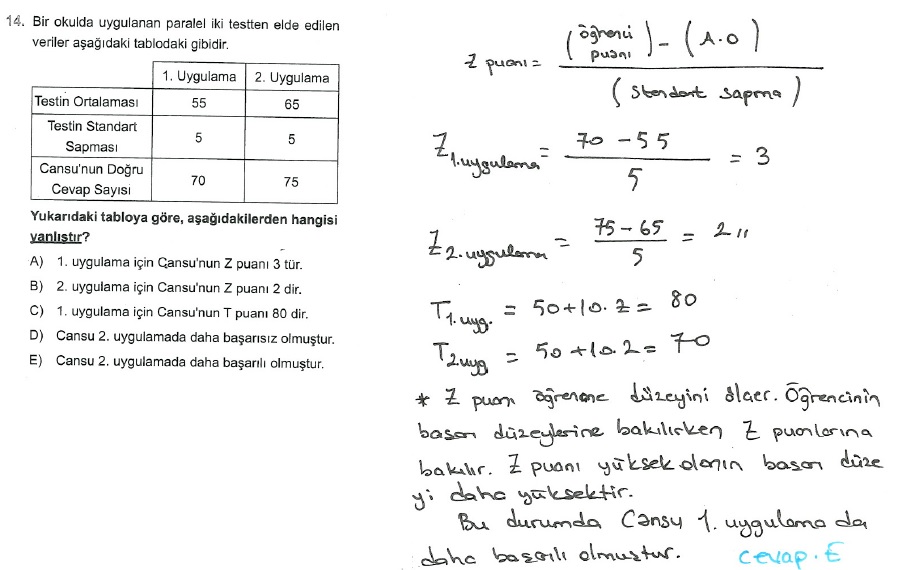 14. Bir okulda uygulanan paralel iki testten elde edilen
veriler aşağıdaki tablodaki gibidir.
1. Uygulama 2. Uygulama
Testin Ortalaması 55 65
Testin Standart
Sapması 5 5
Cansu'nun Doğru
Cevap Sayısı 70 75
Yukarıdaki tabloya göre, aşağıdakilerden hangisi
yanlıştır?
A) 1. uygulama için Cansu'nun Z puanı 3 tür.
B) 2. uygulama için Cansu'nun Z puanı 2 dir.
C) 1. uygulama için Cansu'nun T puanı 80 dir.
D) Cansu 2. uygulamada daha başarısız olmuştur.
E) Cansu 2. uygulamada daha başarılı olmuştur.
Z puanı = (öğrenci puanı) - (A.O)
(Standart sapma)
Z1.uygulama = 70 - 55
5
= 3
Z2.uygulama = 75 - 65
5
= 2 "
T1.uyg. = 50+10.Z = 80
T2uyg = 50+10.2 = 70
* Z puanı öğrenme düzeyini ölçer. Öğrencinin
başarı düzeylerine bakılırken Z puanlarına
bakılır. Z puanı yüksek olanın başarı düze
yi daha yüksektir.
Bu durumda Cansu 1. uygulama da
daha başarılı olmuştur. cevap. E